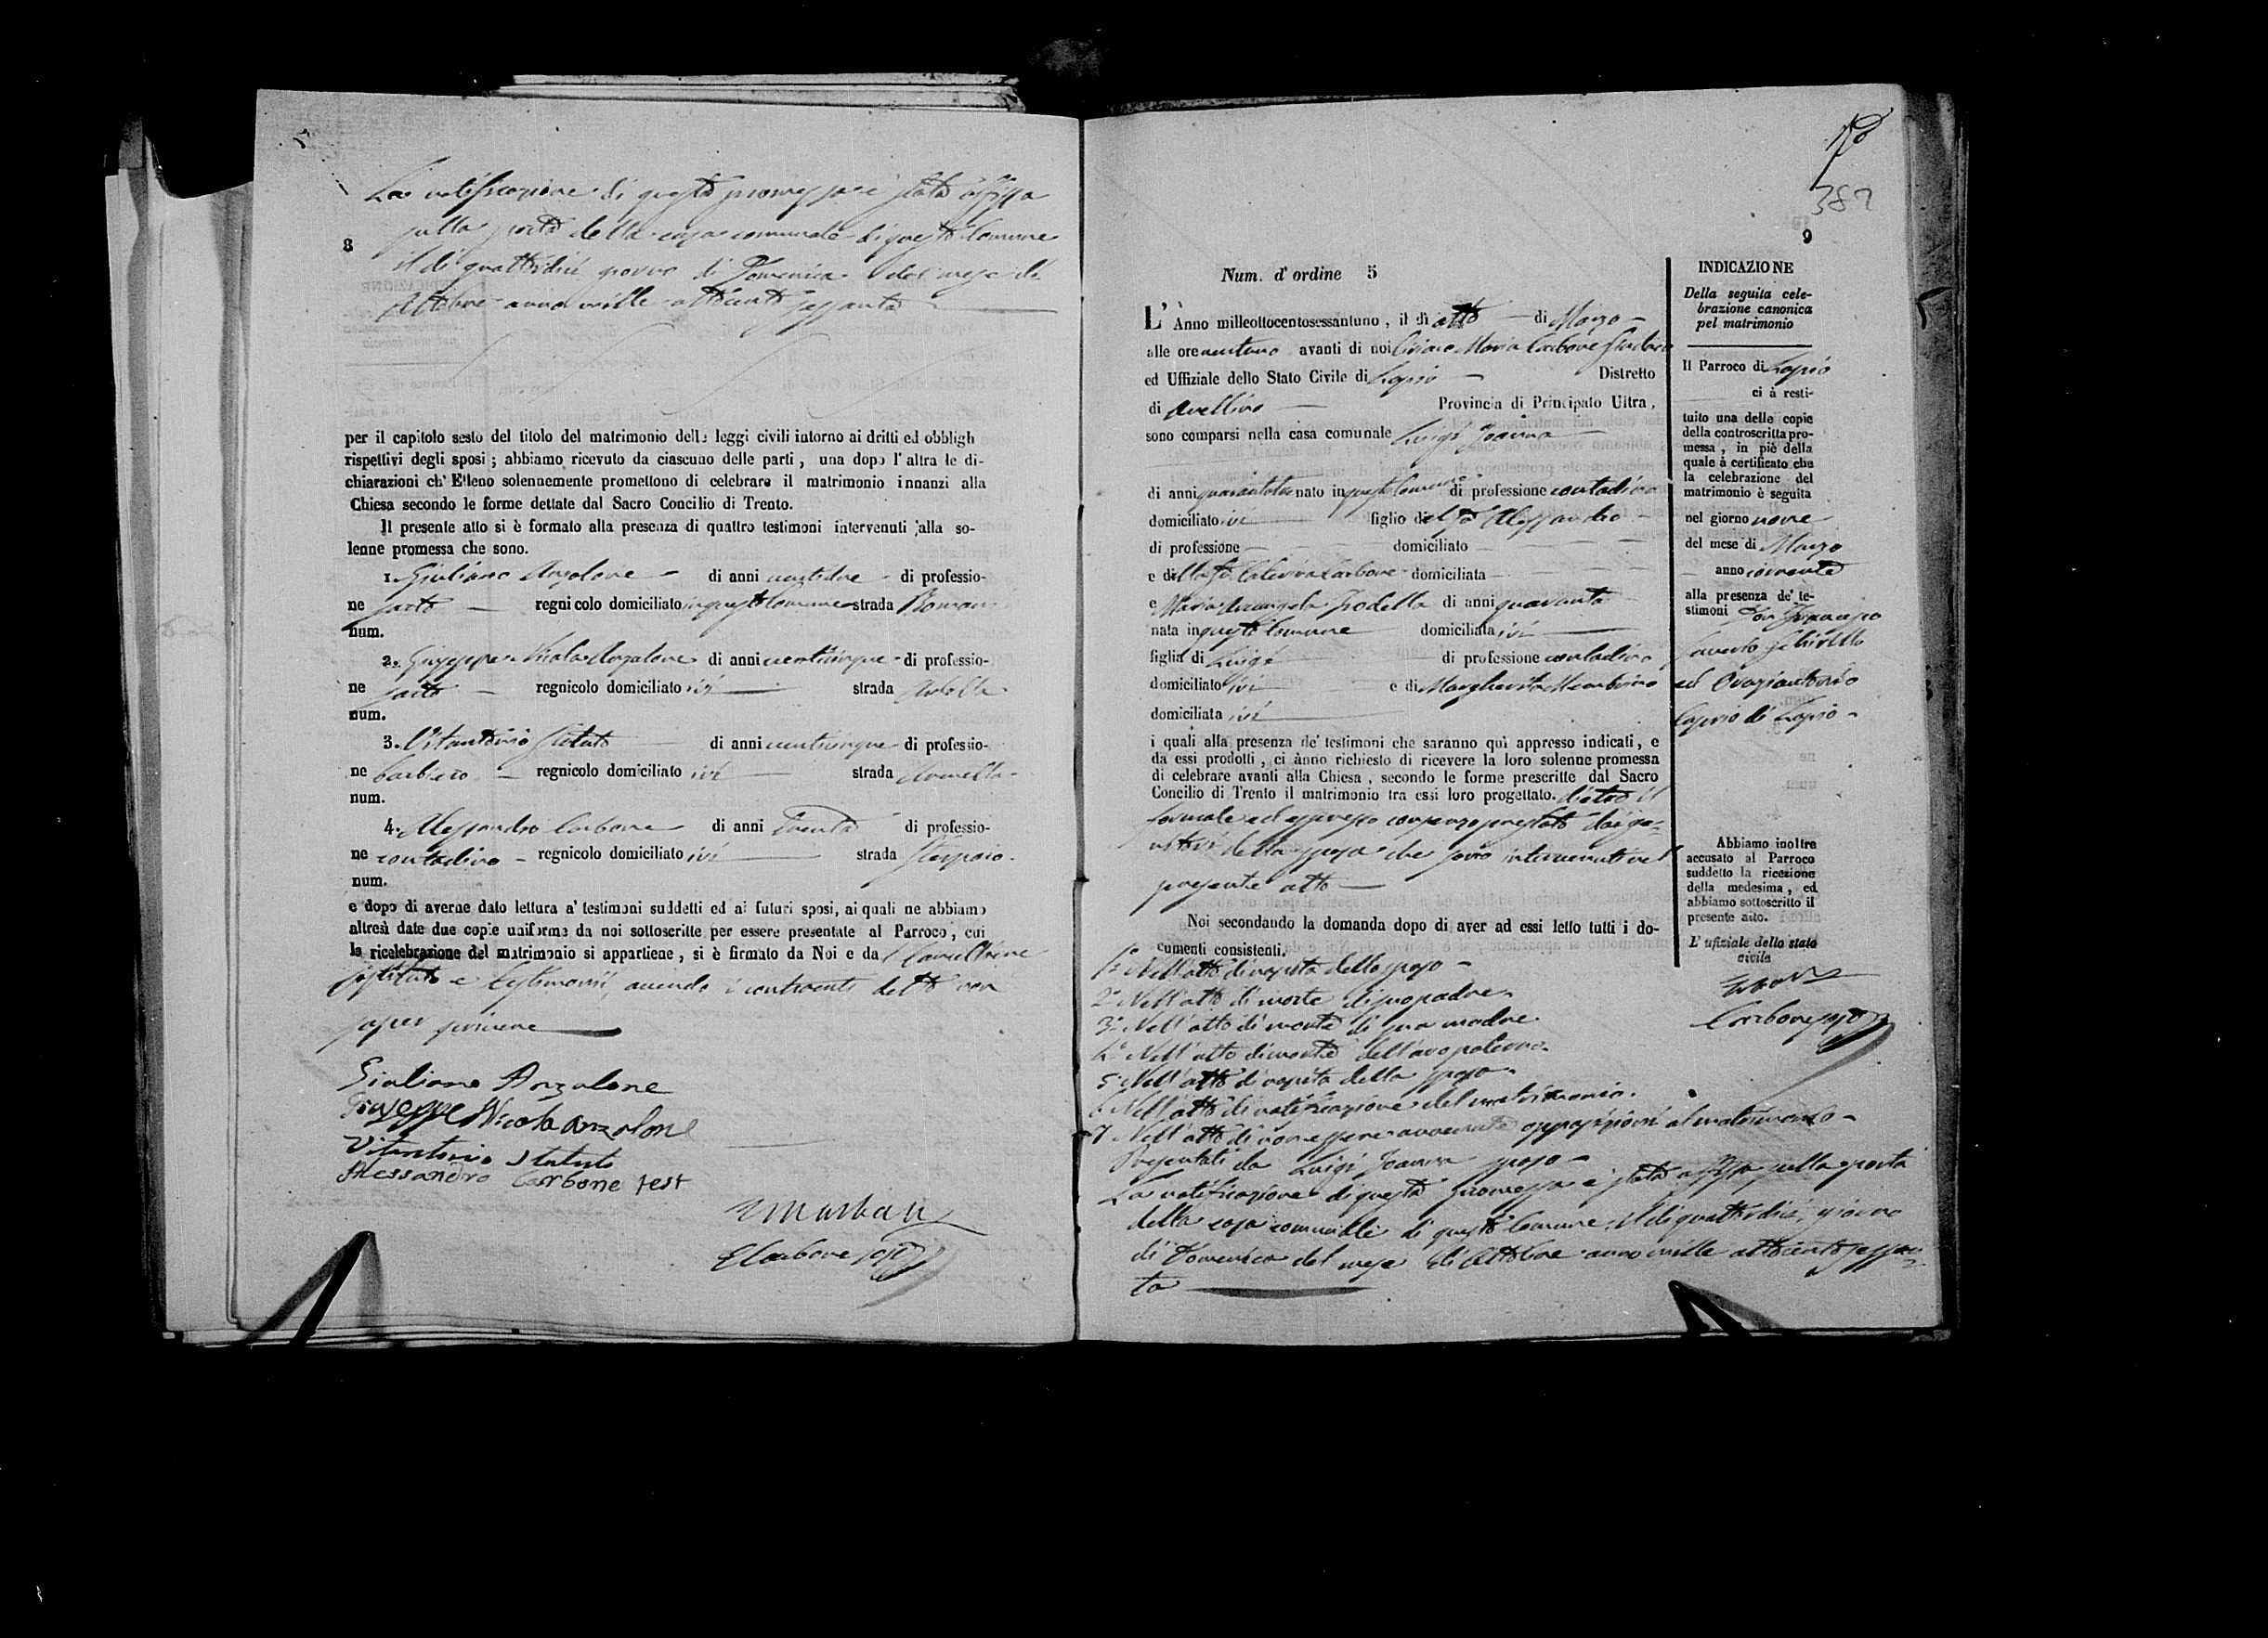 La notificazione di questa promessa è stata affissa
sulla porta della casa comunale di questo Comune
8
il dì quattordici giorno di Domenica del mese di
Ottobre anno mille ottocento sessanta
per il capitolo sesto del titolo del matrimonio delle leggi civili intorno ai dritti ed obbligh
rispettivi degli sposi ; abbiamo ricevuto da ciascuno delle parti , una dopo l' altra le di-
chiarazioni ch' Elleno solennemente promettono di celebrare il matrimonio innanzi alla
Chiesa secondo le forme dettate dal Sacro Concilio di Trento.
Il presente atto si è formato alla presenza di quattro testimoni intervenuti alla so-
lenne promessa che sono.
1. Giuliano Anzalone di anni ventidue di professio-
ne sarto regnicolo domiciliato in questo Comune strada
num.
2. Giuseppe Nicola Anzalone di anni venticinque di professio-
ne sarto regnicolo domiciliato ivi strada
num.
3. Vitantonio Statuto di anni venticinque di professio-
ne barbiere regnicolo domiciliato ivi strada
num.
4. Alessandro Carbone di anni trenta di professio-
ne contadino regnicolo domiciliato ivi strada
num.
e dopo di averne dato lettura a' testimoni suddetti ed ai futuri sposi, ai quali ne abbiamo
altresì date due copie uniforme da noi sottoscritte per essere presentate al Parroco , cui
la ricelebrazione del matrimonio si appartiene , si è firmato da Noi e da Cancelliere
sostituto e testimonii, avendo i contraenti detto non
saper scrivere
Giuliano Anzalone
Giuseppe Nicola Anzalone
Vitantonio Statuto
Alessandro Carbone test
Carbone
387
9
Num. d' ordine 5
L' Anno milleottocentosessantuno , il dì otto di Marzo
alle ore ventuno avanti di noi Maria Carbone Sindaco
ed Uffiziale dello Stato Civile di Lapio Distretto
di Avellino Provincia di Principato Ultra ,
sono comparsi nella casa comunale Luigi Joanna
di anni quarantatre nato in questo Comune di professione contadino
domiciliato ivi figlio del fu Alessandro
di professione domiciliato
e di lla fu Caterina Carbone domiciliata
e Maria Arcangela Trodella di anni quaranta
nata in questo Comune domiciliata ivi
figlia di Luigi di professione contadino
domiciliato ivi e di Margherita
domiciliata ivi
i quali alla presenza de' testimoni che saranno quì appresso indicati , e
da essi prodotti , ci ànno richiesto di ricevere la loro solenne promessa
di celebrare avanti alla Chiesa , secondo le forme prescritte dal Sacro
Concilio di Trento il matrimonio tra essi loro progettato. dietro il
formale ed espresso consenso prestato dai ge-
nitori della sposa che sono intervenuti nel
presente atto
Noi secondando la domanda dopo di aver ad essi letto tutti i do-
cumenti consistenti.
1º Nell'atto di nascita dello sposo
2º Nell'atto di morte di suo padre
3º Nell'atto di morte di sua madre
4º Nell'atto di morte dell'avo paterno
5º Nell'atto di nascita della sposa
6 Nell'atto di notificazione del matrimonio.
7 Nell'atto di non essere avvenute opposizioni al matrimonio
Presentati da Luigi Joanna sposo
La notificazione di questa promessa è stata affissa sulla porta
della casa comunale di questo Comune il dì quattordici, giorno
di Domenica del mese di Ottobre anno mille ottocento sessan-
ta
INDICAZIONE
Della seguita cele-
brazione canonica
pel matrimonio
Il Parroco di Lapio
ci à resti-
tuito una delle copie
della controscritta pro-
messa , in piè della
quale à certificato che
la celebrazione del
matrimonio è seguita
nel giorno nove
del mese di Marzo
anno corrente
alla presenza de' te-
stimoni Don Francesco
Saverio
ed Oraziantonio
Caprio di Lapio
Abbiamo inoltre
accusato al Parroco
suddetto la ricezione
della medesima , ed
abbiamo sottoscritto il
presente atto.
L' ufiziale dello stato
civile
Carbone